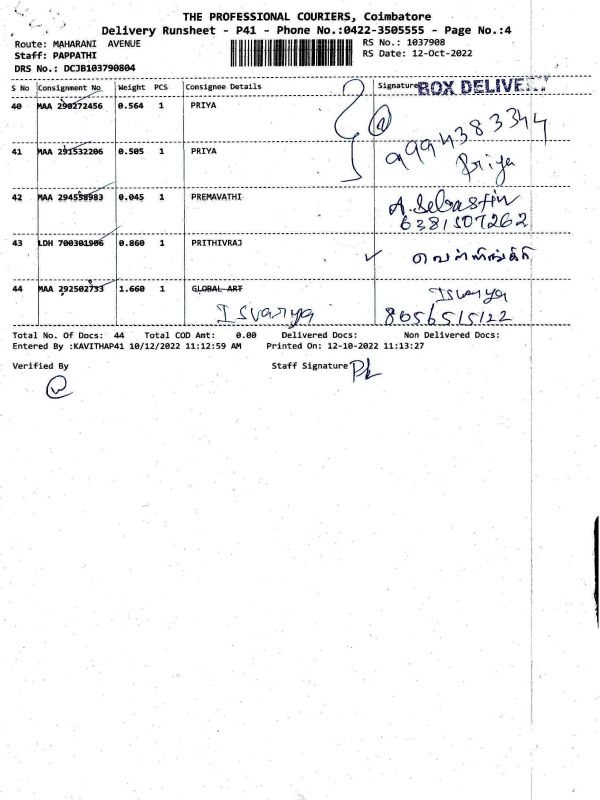 THE PROFESSIONAL COURIERS, Coimbatore
Delivery Runsheet - P41 - Phone No.:0422-3505555 - Page No.:4
Route: MAHARANI AVENUE RS No.: 1037908
Staff: PAPPATHI RS Date: 12-Oct-2022
DRS No.: DCJB103790804
S No Consignment No Weight PCS Consignee Details Signature BOX DELIVERY
40 MAA 290272456 0.564 1 PRIYA
9994383344
41 MAA 291532206 0.505 1 PRIYA Priya
42 MAA 294558983 0.045 1 PREMAVATHI A. Sebastin
6381507262
43 LDH 700301906 0.860 1 PRITHIVRAJ வெள்ளிங்கிரி
44 MAA 292502733 1.660 1 GLOBAL ART Isvarya
Isvarya 8056515122
Total No. Of Docs: 44 Total COD Amt: 0.00 Delivered Docs: Non Delivered Docs:
Entered By :KAVITHAP41 10/12/2022 11:12:59 AM Printed On: 12-10-2022 11:13:27
Verified By Staff Signature